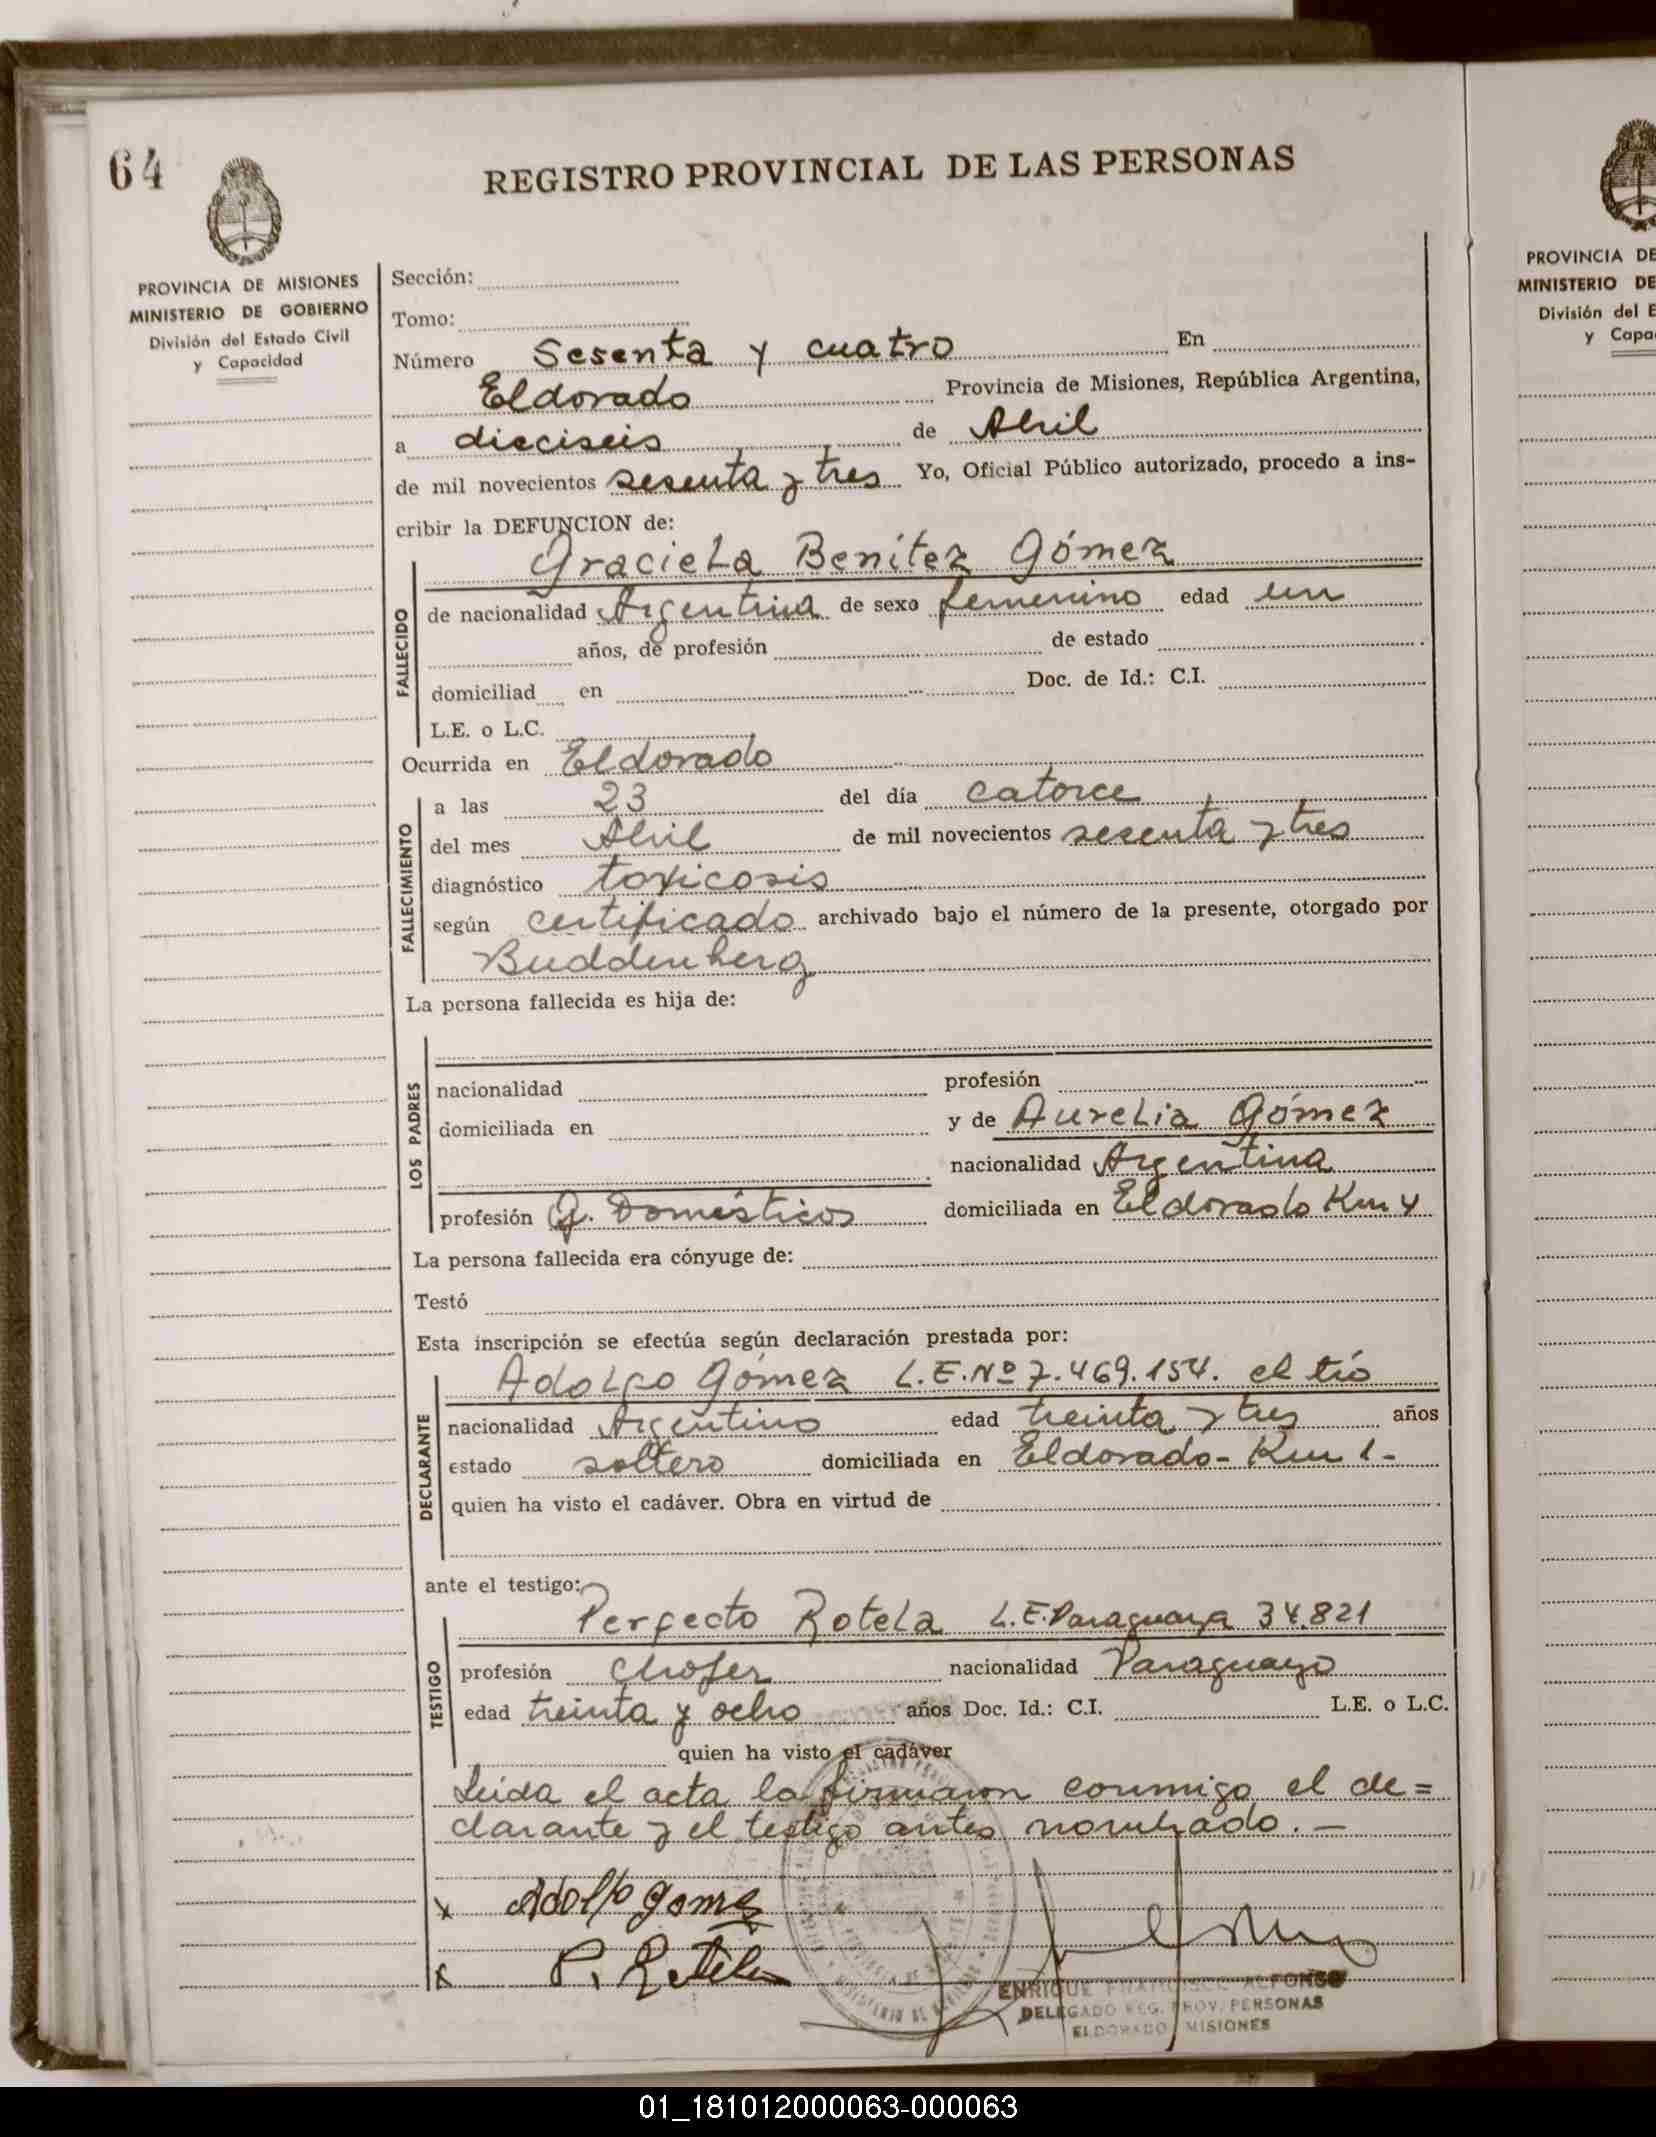 64
REGISTRO PROVINCIAL DE LAS PERSONAS
PROVINCIA DE MISIONES
MINISTERIO DE GOBIERNO
División del Estado Civil
y Capacidad
Sección:
Tomo:
Número Sesenta y cuatro En
Eldorado Provincia de Misiones, República Argentina,
a dieciseis de Abril
de mil novecientos sesenta y tres Yo, Oficial Público autorizado, procedo a ins-
cribir la DEFUNCION de:
Graciela Benítez Gómez
FALLECIDO
de nacionalidad Argentina de sexo femenino edad un
años, de profesión de estado
domiciliad en Doc. de Id.: C.I.
L.E. o L.C.
Ocurrida en Eldorado
FALLECIMIENTO
a las 23 del día catorce
del mes Abril de mil novecientos sesenta y tres
diagnóstico toxicosis
según certificado archivado bajo el número de la presente, otorgado por
Buddenberg
La persona fallecida es hija de:
LOS PADRES
nacionalidad profesión
domiciliada en y de Aurelia Gómez
nacionalidad Argentina
profesión Q. Domésticos domiciliada en Eldorado Km 4
La persona fallecida era cónyuge de:
Testó
Esta inscripción se efectúa según declaración prestada por:
Adolfo Gómez L.E.Nº 7.469.154. el tío
DECLARANTE
nacionalidad Argentino edad treinta y tres años
estado soltero domiciliada en Eldorado - Km 1 -
quien ha visto el cadáver. Obra en virtud de
ante el testigo:
Perfecto Rotela L.E. Paraguaya 34.821
TESTIGO
profesión Chofer nacionalidad Paraguayo
edad treinta y ocho años Doc. Id.: C.I. L.E. o L.C.
quien ha visto el cadáver
Leída el acta la firmaron conmigo el de=
clarante y el testigo antes nombrado. —
x Adolfo gomez
x P. Rotela
ENRIQUE FRANCISCO ALFONSO
DELEGADO REG. PROV. PERSONAS
ELDORADO MISIONES
PROVINCIA DE
MINISTERIO DE
División del E
y Capa
01_181012000063-000063